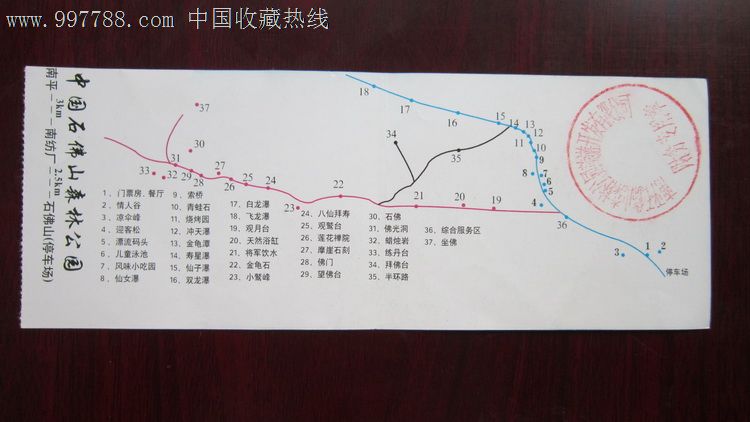 www.997788.com 中国收藏热线
中国石佛山森林公园
南平---南纺厂---石佛山(停车场)
3km 2.5km
1、门票房、餐厅
2、情人谷
3、凉伞峰
4、迎客松
5、漂流码头
6、儿童泳池
7、风味小吃园
8、仙女瀑
9、索桥
10、青蛙石
11、烧烤园
12、冲天瀑
13、金龟潭
14、寿星瀑
15、仙子瀑
16、双龙瀑
17、白龙瀑
18、飞龙瀑
19、观月台
20、天然浴缸
21、将军饮水
22、金龟石
23、小鹫峰
24、八仙拜寿
25、观鹫台
26、莲花禅院
27、摩崖石刻
28、佛门
29、望佛台
30、石佛
31、佛光洞
32、蜡烛岩
33、练丹台
34、拜佛台
35、半环路
36、综合服务区
37、坐佛
18
17
16
15
14
13
12
11
10
9
8
7
6
5
4
36
3
1
2
停车场
37
30
33
32
31
29
28
27
26
25
24
23
22
21
20
19
34
35